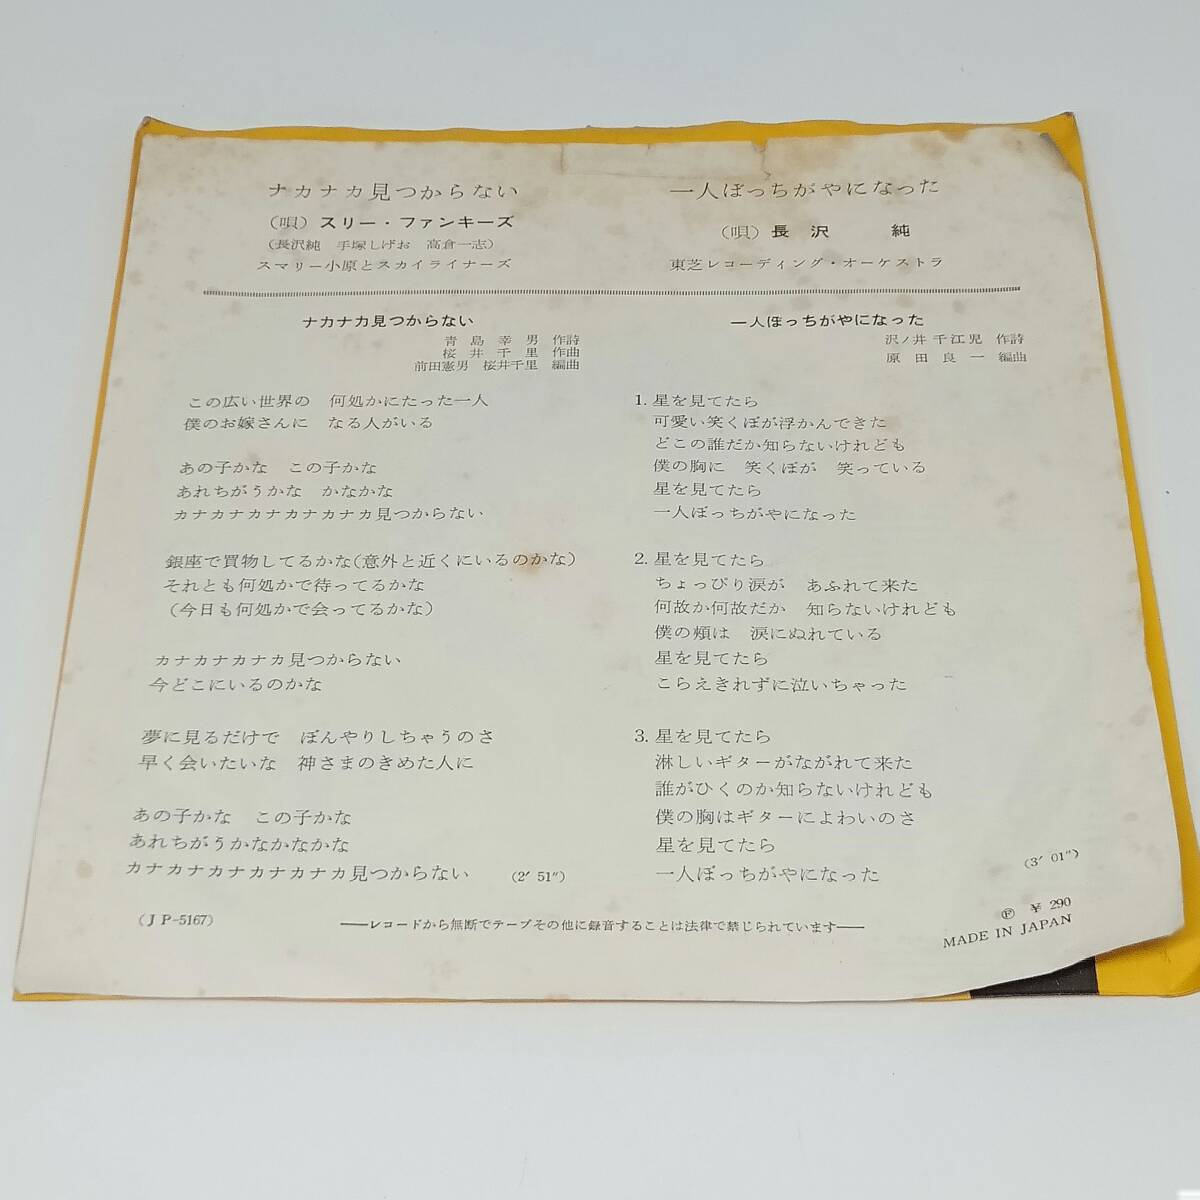 ナカナカ見つからない
(唄) スリー・ファンキーズ
(長沢純 手塚しげお 高倉一志)
スマリー小原とスカイライナーズ
一人ぼっちがやになった
(唄) 長沢 純
東芝レコーディング・オーケストラ
ナカナカ見つからない
青島幸男 作詩
桜井千里 作曲
前田憲男 桜井千里 編曲
この広い世界の 何処かにたった一人
僕のお嫁さんに なる人がいる
あの子かな この子かな
あれちがうかな かなかな
カナカナカナカナカナカ見つからない
銀座で買物してるかな(意外と近くにいるのかな)
それとも何処かで待ってるかな
(今日も何処かで会ってるかな)
カナカナカナカ見つからない
今どこにいるのかな
夢に見るだけで ぼんやりしちゃうのさ
早く会いたいな 神さまのきめた人に
あの子かな この子かな
あれちがうかなかなかな
カナカナカナカナカナカ見つからない (2′51″)
一人ぼっちがやになった
沢ノ井千江児 作詩
原田良一 編曲
1. 星を見てたら
可愛い笑くぼが浮かんできた
どこの誰だか知らないけれども
僕の胸に 笑くぼが 笑っている
星を見てたら
一人ぼっちがやになった
2. 星を見てたら
ちょっぴり涙が あふれて来た
何故か何故だか 知らないけれども
僕の頬は 涙にぬれている
星を見てたら
こらえきれずに泣いちゃった
3. 星を見てたら
淋しいギターがながれて来た
誰がひくのか知らないけれども
僕の胸はギターによわいのさ
星を見てたら
一人ぼっちがやになった
(3′01″)
(JP-5167)
――レコードから無断でテープその他に録音することは法律で禁じられています――
Ⓟ ¥290
MADE IN JAPAN